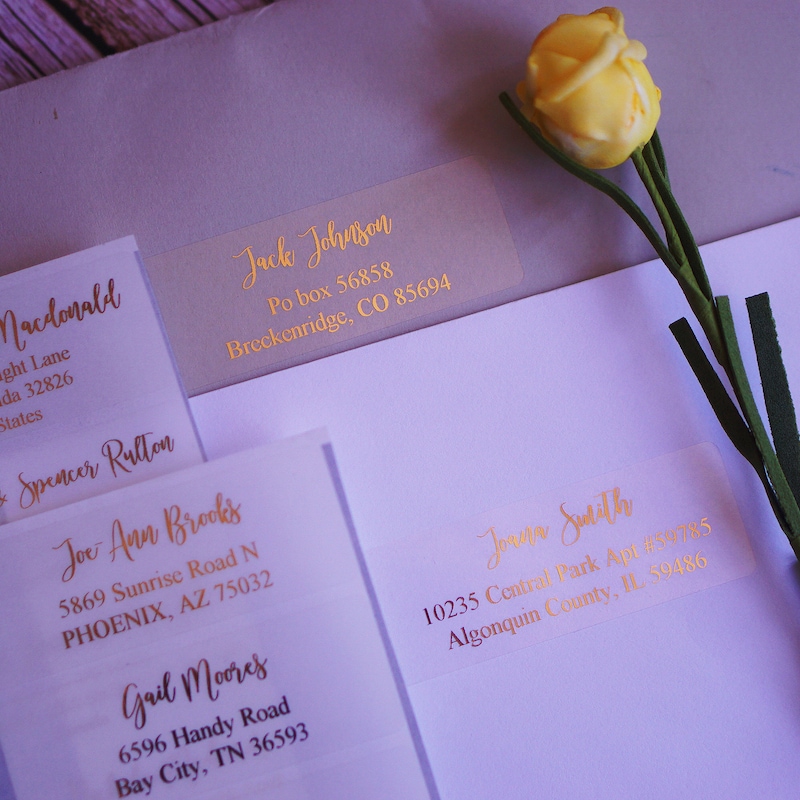 Jack Johnson
Po box 56858
Breckenridge, CO 85694
Macdonald
ght Lane
da 32826
States
& Spencer Rulton
Joe-Ann Brooks
5869 Sunrise Road N
PHOENIX, AZ 75032
Gail Moores
6596 Handy Road
Bay City, TN 36593
Joana Smith
10235 Central Park Apt #59785
Algonquin County, IL 59486